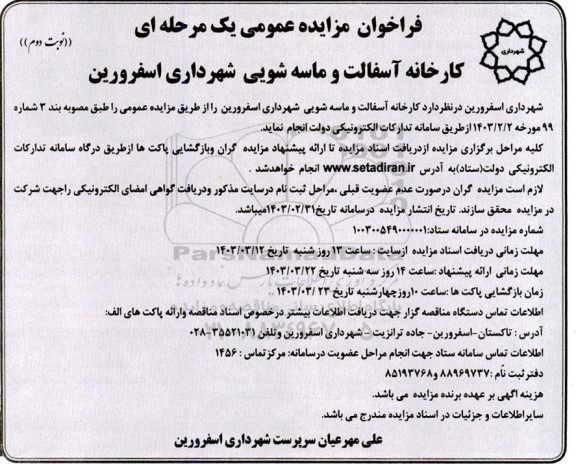 فراخوان مزایده عمومی یک مرحله ای
((نوبت دوم))
شهرداری
کارخانه آسفالت و ماسه شویی شهرداری اسفرورین
شهرداری اسفرورین درنظردارد کارخانه آسفالت و ماسه شویی شهرداری اسفرورین را از طریق مزایده عمومی را طبق مصوبه بند ۳ شماره
۹۹ مورخه ۱۴۰۳/۲/۲ ازطریق سامانه تدارکات الکترونیکی دولت انجام نماید.
کلیه مراحل برگزاری مزایده ازدریافت اسناد مزایده تا ارائه پیشنهاد مزایده گران وبازگشایی پاکت ها ازطریق درگاه سامانه تدارکات
الکترونیکی دولت(ستاد)به آدرس www.setadiran.ir انجام خواهدشد .
لازم است مزایده گران درصورت عدم عضویت قبلی ،مراحل ثبت نام درسایت مذکور ودریافت گواهی امضای الکترونیکی راجهت شرکت
در مزایده محقق سازند. تاریخ انتشار مزایده درسامانه تاریخ۱۴۰۳/۰۲/۳۱میباشد.
شماره مزایده در سامانه ستاد:۱۰۰۳۰۰۵۴۹۰۰۰۰۰۱
مهلت زمانی دریافت اسناد مزایده ازسایت : ساعت ۱۳ روز شنبه تاریخ ۱۴۰۳/۰۳/۱۲
مهلت زمانی ارائه پیشنهاد :ساعت ۱۴ روز سه شنبه تاریخ ۱۴۰۳/۰۳/۲۲
زمان بازگشایی پاکت ها :ساعت ۱۰روزچهارشنبه تاریخ ۱۴۰۳/۰۳/۲۳
اطلاعات تماس دستگاه مناقصه گزار جهت دریافت اطلاعات بیشتر درخصوص اسناد مناقصه وارائه پاکت های الف:
آدرس : تاکستان-اسفرورین- جاده ترانزیت -شهرداری اسفرورین وتلفن ۳۵۵۲۱۰۳۱-۰۲۸
اطلاعات تماس سامانه ستاد جهت انجام مراحل عضویت درسامانه: مرکزتماس : ۱۴۵۶
دفترثبت نام :۸۸۹۶۹۷۳۷ و۸۵۱۹۳۷۶۸
هزینه آگهی بر عهده برنده مزایده می باشد.
سایراطلاعات و جزئیات در اسناد مزایده مندرج می باشد.
علی مهرعیان سرپرست شهرداری اسفرورین
ParsNamadData